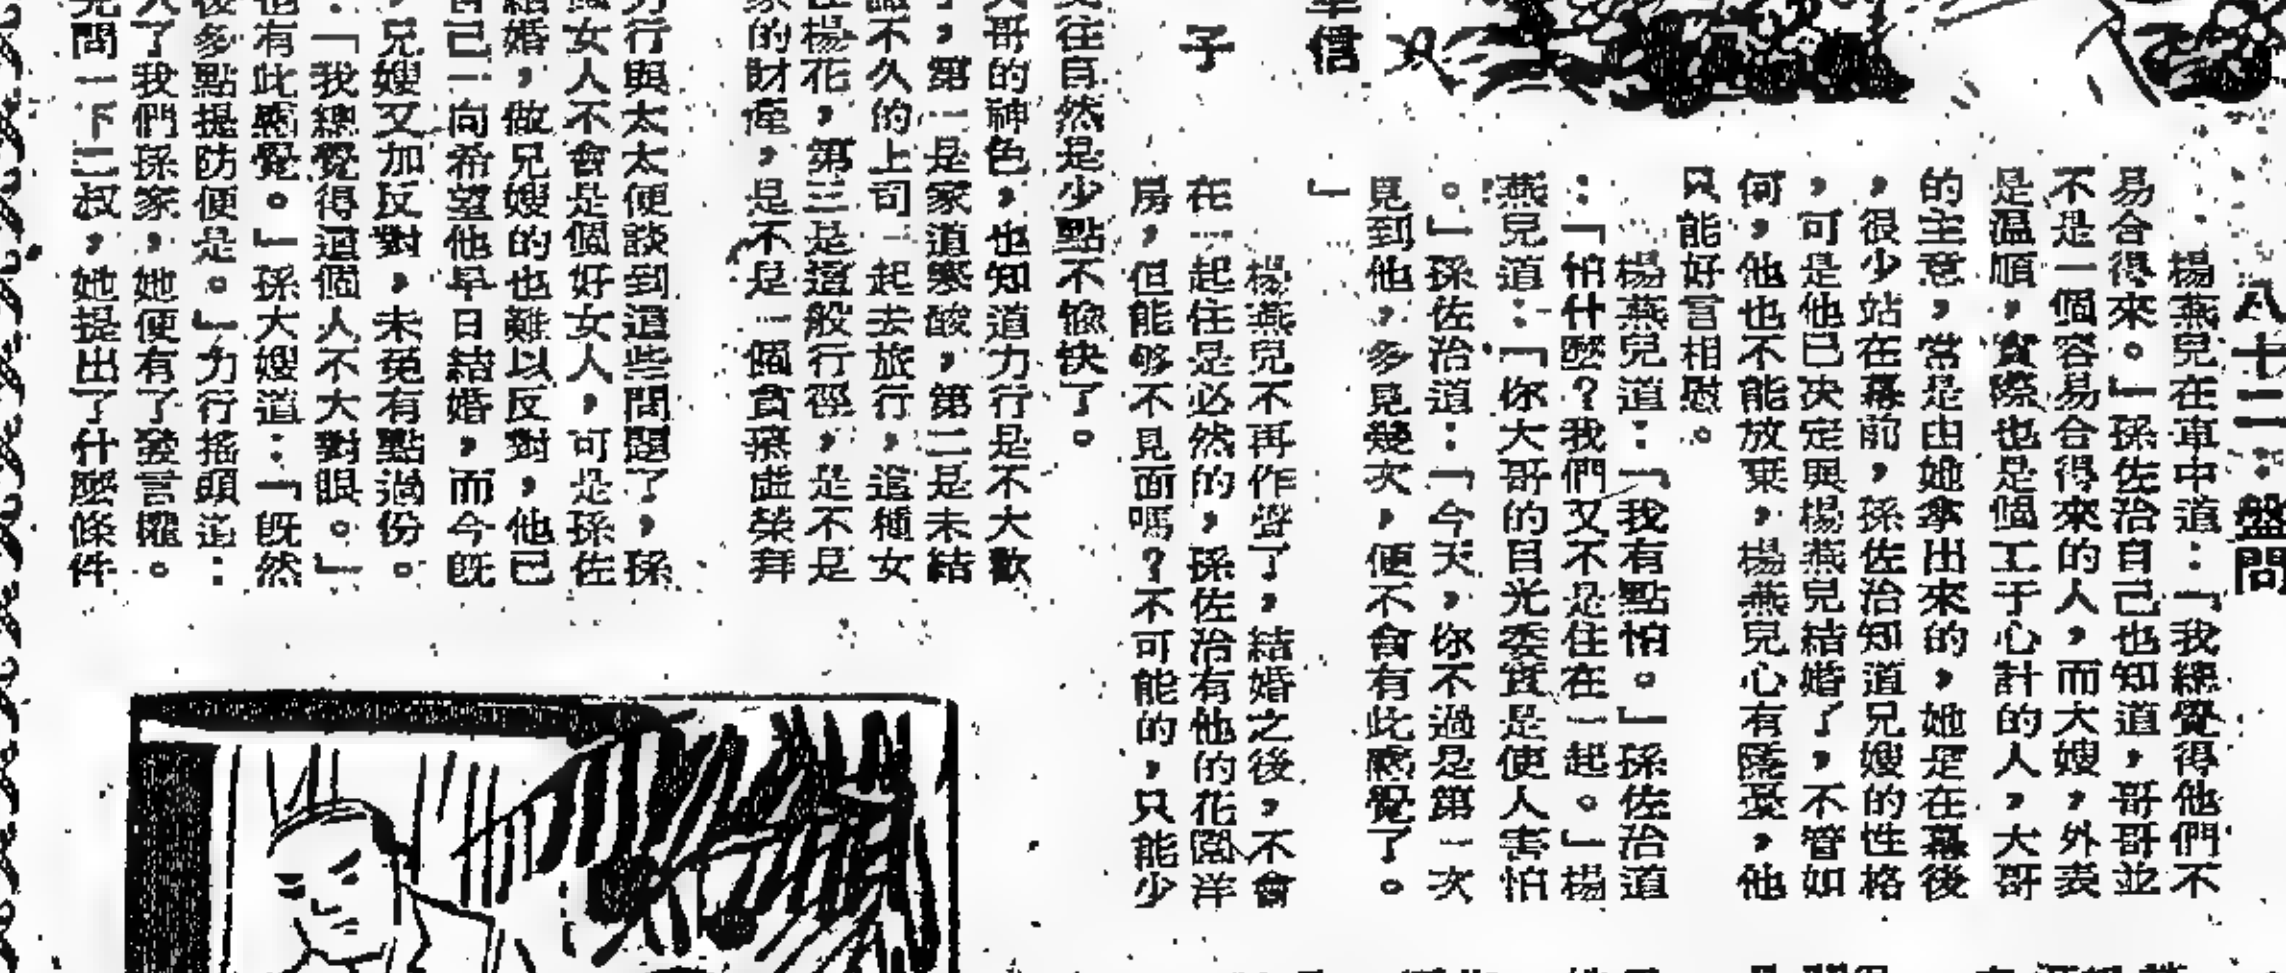 八十二：盤問
楊燕兒在車中道：「我總覺得他們不
易合得來。」孫佐治自己也知道，哥哥並
不是一個容易合得來的人，而大嫂，外表
是温順，實際也是個工于心計的人，大哥
的主意，常是由她拿出來的，她是在幕後
，很少站在幕前，孫佐治知道兄嫂的性格
，可是他已决定與楊燕兒結婚了，不管如
何，他也不能放棄，楊燕兒心有隱憂，他
只能好言相慰。
楊燕兒道：「我有點怕。」孫佐治道
：「怕什麼？我們又不是住在一起。」楊
燕兒道：「你大哥的目光委實是使人害怕
。」孫佐治道：「今天，你不過是第一次
見到他，多見幾次，便不會有此感覺了。
」
楊燕兒不再作聲了，結婚之後，不會
在一起住是必然的，孫佐治有他的花園洋
房，但能够不見面嗎？不可能的，只能少
信
子
往自然是少點不愉快了。
哥的神色，也知道力行是不大歡
，第一是家道寒酸，第二是未結
不久的上司一起去旅行，這種女
楊花，第三是這般行徑，是不是
的財產，是不是一個貪慕虛榮拜
行與太太便談到這些問題了，孫
女人不會是個好女人，可是孫佐
婚，做兄嫂的也難以反對，他已
己一向希望他早日結婚，而今既
兄嫂又加反對，未免有點過份。
：「我總覺得這個人不大對眼。」
也有此感覺。」孫大嫂道：「既然
後多點提防便是。」力行搖頭道：
了我們孫家，她便有了發言權。
問一下二叔，她提出了什麼條件